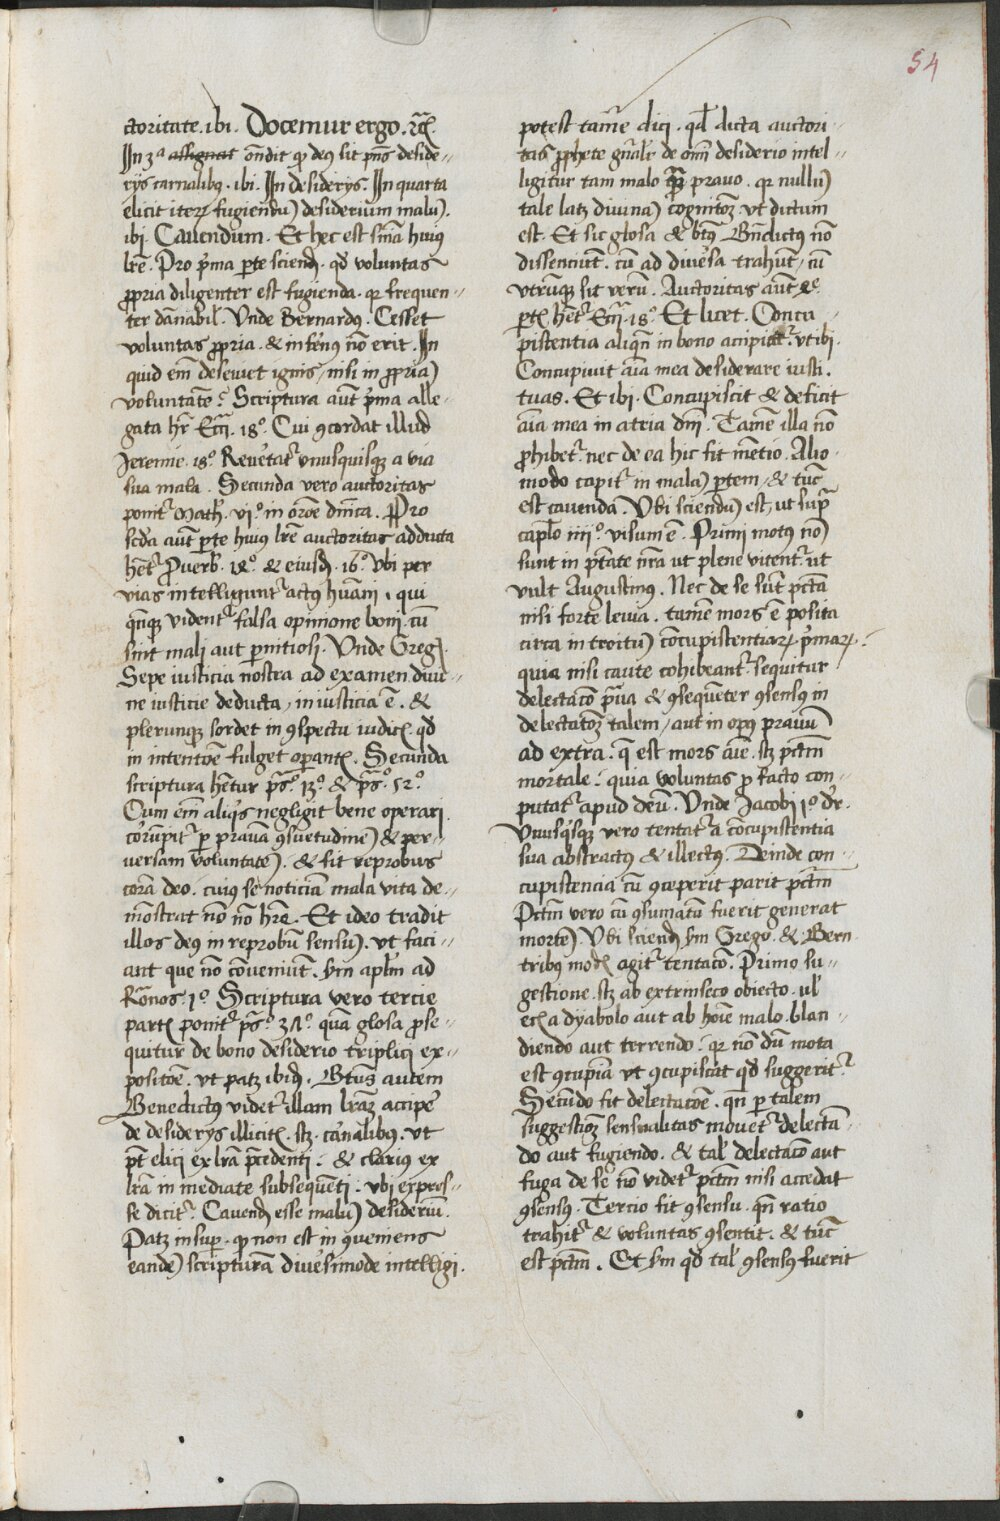 54
ctoritate . ibi . Docemur ergo . rc̃.
In 3ª assignat ōndit qꝫ deꝯ sit p̄ns deside-
rijs carnalibꝯ . ibi . In desiderijs . In quarta
elicit iterꝫ fugiendū desiderium malū .
ibj . Cauendum . Et hec est sūma huiꝯ
lr̄e . Pro p̾ma p̱te sciend̄ . qd̄ voluntas
ꝓpria diligenter est fugienda . qꝛ frequen-
ter dānabil' . Vnde Bernardꝯ . Cesset
voluntas ꝓpria . & infernꝯ nō erit . In
quid em̄ deseuiet ignis / nisi in ꝓpriā
voluntatē ? Scriptura aūt p̾ma alle-
gata hr̄ Ecc̄i . 18º. Cui ꝯcordat illud
Jeremie . 18º. Reu̾tatᷣ vnusquisqꝫ a via
sua mala . Secunda vero auctoritas
ponitᷣ Math̾ . vjº. in orōe dn̄ica . Pro
sc̄da aūt p̱te huiꝯ lr̄e auctoritas adducta
hēt̃ Prouerb̾ . 12º. & eiusd̄ . 16º. Vbi per
vias intelliguntᷣ actꝯ hūani , qui
qn̄qꝫ videntᷣ falsa opinione boni . cū
sint malj aut p̱nitiosi . Vnde Greg̾.
Sepe iusticia nostra ad examen diui-
ne iusticie deducta , iniusticia ē . &
plerunqꝫ sordet in ꝯspectu iudicꝭ qd̄
in intentōe fulget op̱antꝭ . Secunda
scriptura hētur p̄s̾º. 13º. & p̄s̾º. 52º.
Cum em̄ aliq̾s negligit bene operari .
corūpitᷣ p̱ prauā ꝯsuetudinē & per-
uersam voluntatē . & fit reprobus
corā deo . cuiꝯ se noticiā mala vita de-
mōstrat nō nō hr̄e . Et ideo tradit
illos deꝯ in reprobū sensū . vt faci-
ant que nō cōueniūt . sm̄ apl̄m ad
Rōnos . 1º. Scriptura vero tercie
partꝭ ponitᷣ p̄s̾º. 37º. quā glosa ꝓse-
quitur de bono desiderio triplicj ex-
positōe . vt patꝫ ibid̄ . Btūs autem
Benedictus videtᷣ illam lr̄am accip̾e
de desiderijs illicitꝭ . sꝫ . carnalibꝯ . vt
pt̄ elici ex lr̄a p̄cedenti . & clariꝯ ex
lr̄a inmediate subsequēti . vbi expres-
se dicitᷣ . Cauend̄ esse malū desideriū .
Patꝫ insup̱ . qꝫ non est inꝯueniens
eandē scripturā diu̾simode intelligi .
potest tamē dici . qd̄ dicta auctori-
tas ꝓphete gn̄alr̄ de om̄i desiderio intel-
ligitur tam malo qꝫ prauo . qꝛ nullū
tale latꝫ diuinā cognitōꝫ vt dictum
est . Et sic glosa & bt̄us Bn̄dictus nō
dissenciūt . cū ad diu̾sa trahūt / cū
vtrūqꝫ sit verū . Auctoritas aūt 2ᵉ
p̱tꝭ hētᷣ Ecc̄i . 18º. Et licet . Concu-
piscentia aliqn̄ in bono accipiatᷣ . vt ibi .
Concupiuit aīa mea desiderare iusti .
tuas . Et ibi . Concupiscit & deficit
aīa mea in atria dn̄i . Tamē illa nō
ꝓhibetᷣ . nec de ea hic fit mētio . Alio
modo capitᷣ in malā p̱tem , & tūc
est cauenda . Vbi sciendū est , ut sup̄
caplo iiijº. visum ē . Primi motꝯ nō
sunt in p̄tate nr̄a ut plene vitentᷣ . ut
vult Augustinꝯ . Nec de se sūt pctā
nisi forte leuia . tamē mors ē posita
circa introitū cōcupiscentiaꝝ p̾maꝝ .
quia nisi caute cohibeantᷣ . sequitur
delectacō p̄ua & ꝯsequēter ꝯsensꝯ in
delectatōꝫ talem / aut in opꝯ prauū
ad extra . q̄ est mors aīe . sꝫ pctm̄
mortale . quia voluntas ꝓ facto con-
putatᷣ apud deū . Vnde Jacobi 1º dr̄ .
Vnusq̾sqꝫ vero tentatᷣ a cōcupiscentia
sua abstractꝯ & illectꝯ . Deinde con-
cupiscencia cū ꝯceperit parit pctm̄
Pctm̄ vero cū ꝯsumatū fuerit generat
mortē . Vbi sciend̄ sm̄ Grego . & Bern
tribꝯ modꝭ agitᷣ tentacō . Primo su-
gestione . sꝫ ab extrinseco obiecto . ul'
eciā a dyabolo aut ab hoīe malo . blan-
diendo aut terrendo . qꝛ nō dū mota
est ꝯcupīa vt ꝯcupiscat qd̄ suggeritᷣ
Secūdo fit delectacōe . qn̄ p̱ talem
suggestiōꝫ sensualitas mouetᷣ delectā-
do aut fugiendo . & tal' delectacō aut
fuga de se nō videtᷣ pctm̄ nisi accedat
ꝯsensꝯ . Tercio fit ꝯsensu . qn̄ ratio
trahitᷣ & voluntas ꝯsentit . & tūc
est pctm̄ . Et sm̄ qd̄ tal' ꝯsensꝯ fuerit